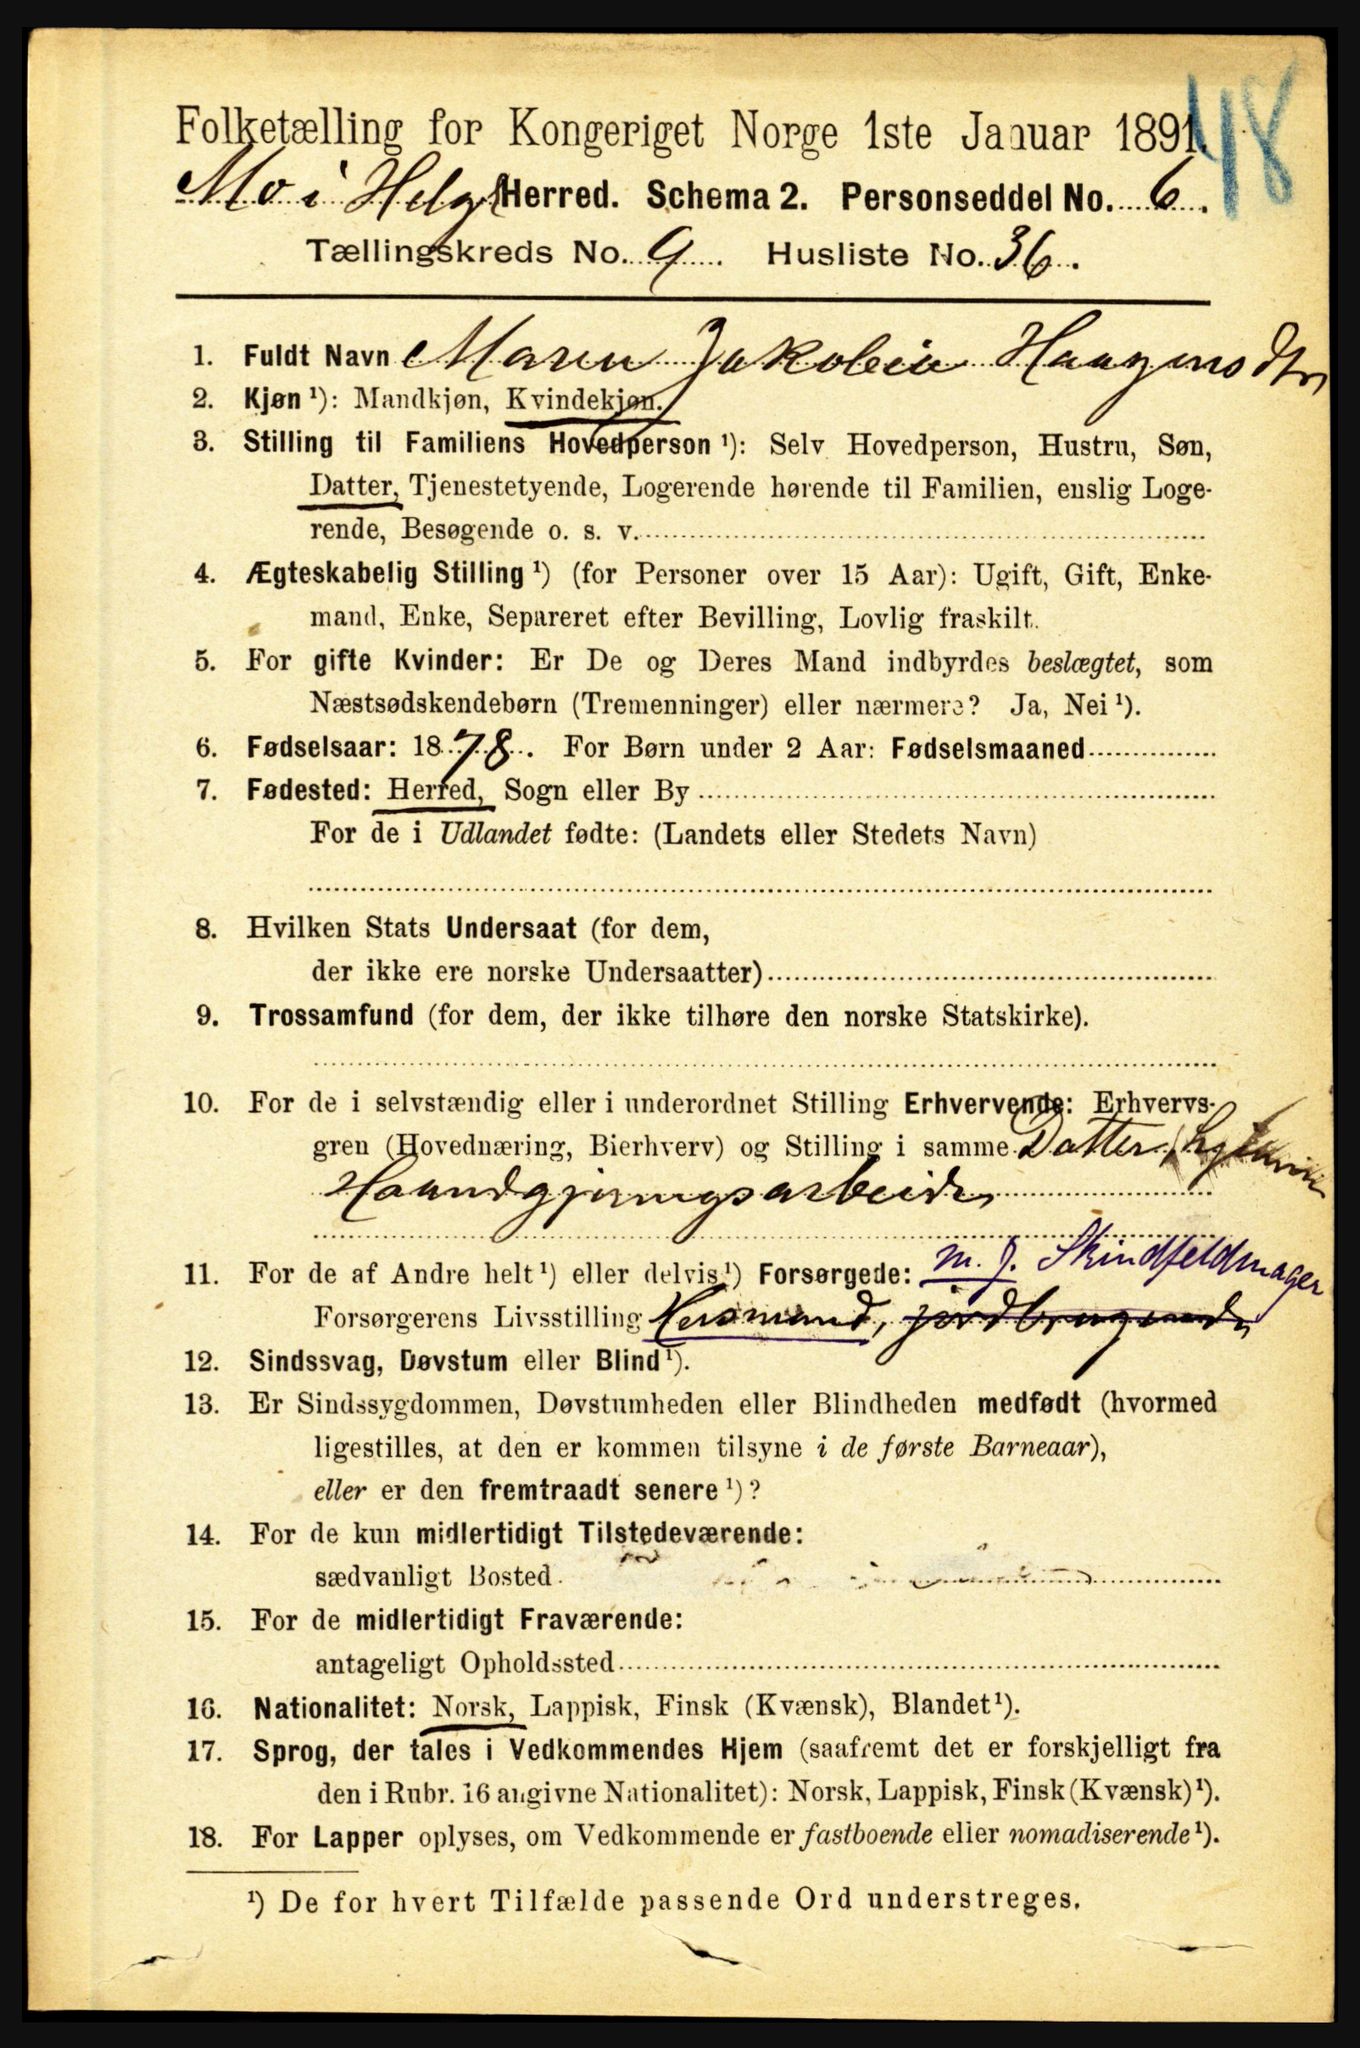 48
Folketælling for Kongeriget Norge 1ste Januar 1891.
Mo i Helgl Herred. Schema 2. Personseddel No. 6.
Tællingskreds No. 9. Husliste No. 36.
1. Fuldt Navn Maren Jakobine Haagensdtr
2. Kjøn ¹): Mandkjøn, Kvindekjøn.
3. Stilling til Familiens Hovedperson ¹): Selv Hovedperson, Hustru, Søn,
Datter, Tjenestetyende, Logerende hørende til Familien, enslig Loge-
rende, Besøgende o. s. v.
4. Ægteskabelig Stilling ¹) (for Personer over 15 Aar): Ugift, Gift, Enke-
mand, Enke, Separeret efter Bevilling, Lovlig fraskilt.
5. For gifte Kvinder: Er De og Deres Mand indbyrdes beslægtet, som
Næstsødskendebørn (Tremenninger) eller nærmere? Ja, Nei ¹).
6. Fødselsaar: 1878. For Børn under 2 Aar: Fødselsmaaned
7. Fødested: Herred, Sogn eller By
For de i Udlandet fødte: (Landets eller Stedets Navn)
8. Hvilken Stats Undersaat (for dem,
der ikke ere norske Undersaatter)
9. Trossamfund (for dem, der ikke tilhøre den norske Statskirke).
10. For de i selvstændig eller i underordnet Stilling Erhvervende: Erhvervs-
gren (Hovednæring, Bierhverv) og Stilling i samme Datter,
Haandgjerningsarbeide
11. For de af Andre helt ¹) eller delvis ¹) Forsørgede: m. J. Skindfeldmager
Forsørgerens Livsstilling Husmand, jordbrugende
12. Sindssvag, Døvstum eller Blind ¹).
13. Er Sindssygdommen, Døvstumheden eller Blindheden medfødt (hvormed
ligestilles, at den er kommen tilsyne i de første Barneaar),
eller er den fremtraadt senere ¹)?
14. For de kun midlertidigt Tilstedeværende:
sædvanligt Bosted
15. For de midlertidigt Fraværende:
antageligt Opholdssted
16. Nationalitet: Norsk, Lappisk, Finsk (Kvænsk), Blandet ¹).
17. Sprog, der tales i Vedkommendes Hjem (saafremt det er forskjelligt fra
den i Rubr. 16 angivne Nationalitet): Norsk, Lappisk, Finsk (Kvænsk) ¹).
18. For Lapper oplyses, om Vedkommende er fastboende eller nomadiserende ¹).
¹) De for hvert Tilfælde passende Ord understreges.